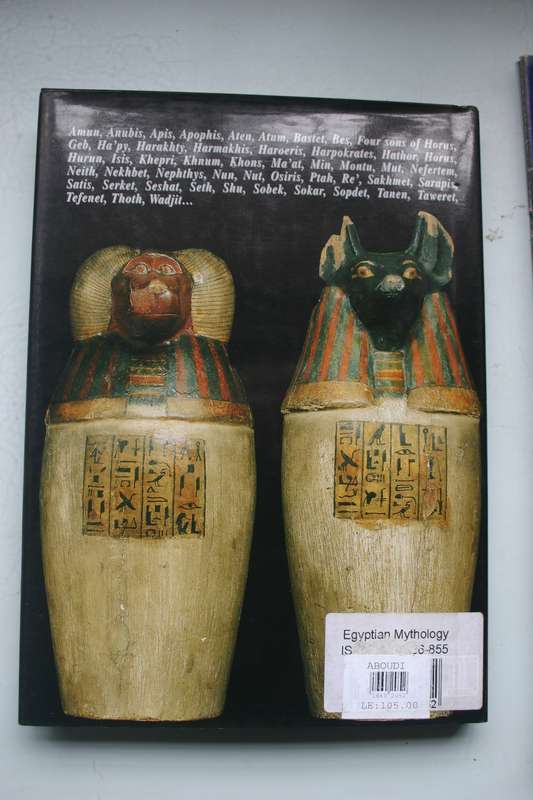 Amun, Anubis, Apis, Apophis, Aten, Atum, Bastet, Bes, Four sons of Horus,
Geb, Ha'py, Harakhty, Harmakhis, Haroeris, Harpokrates, Hathor, Horus,
Hurun, Isis, Khepri, Khnum, Khons, Ma'at, Min, Montu, Mut, Nefertem,
Neith, Nekhbet, Nephthys, Nun, Nut, Osiris, Ptah, Re', Sakhmet, Sarapis,
Satis, Serket, Seshat, Seth, Shu, Sobek, Sokar, Sopdet, Tanen, Taweret,
Tefenet, Thoth, Wadjit...
Egyptian Mythology
IS 26-855
ABOUDI
LE:105.00